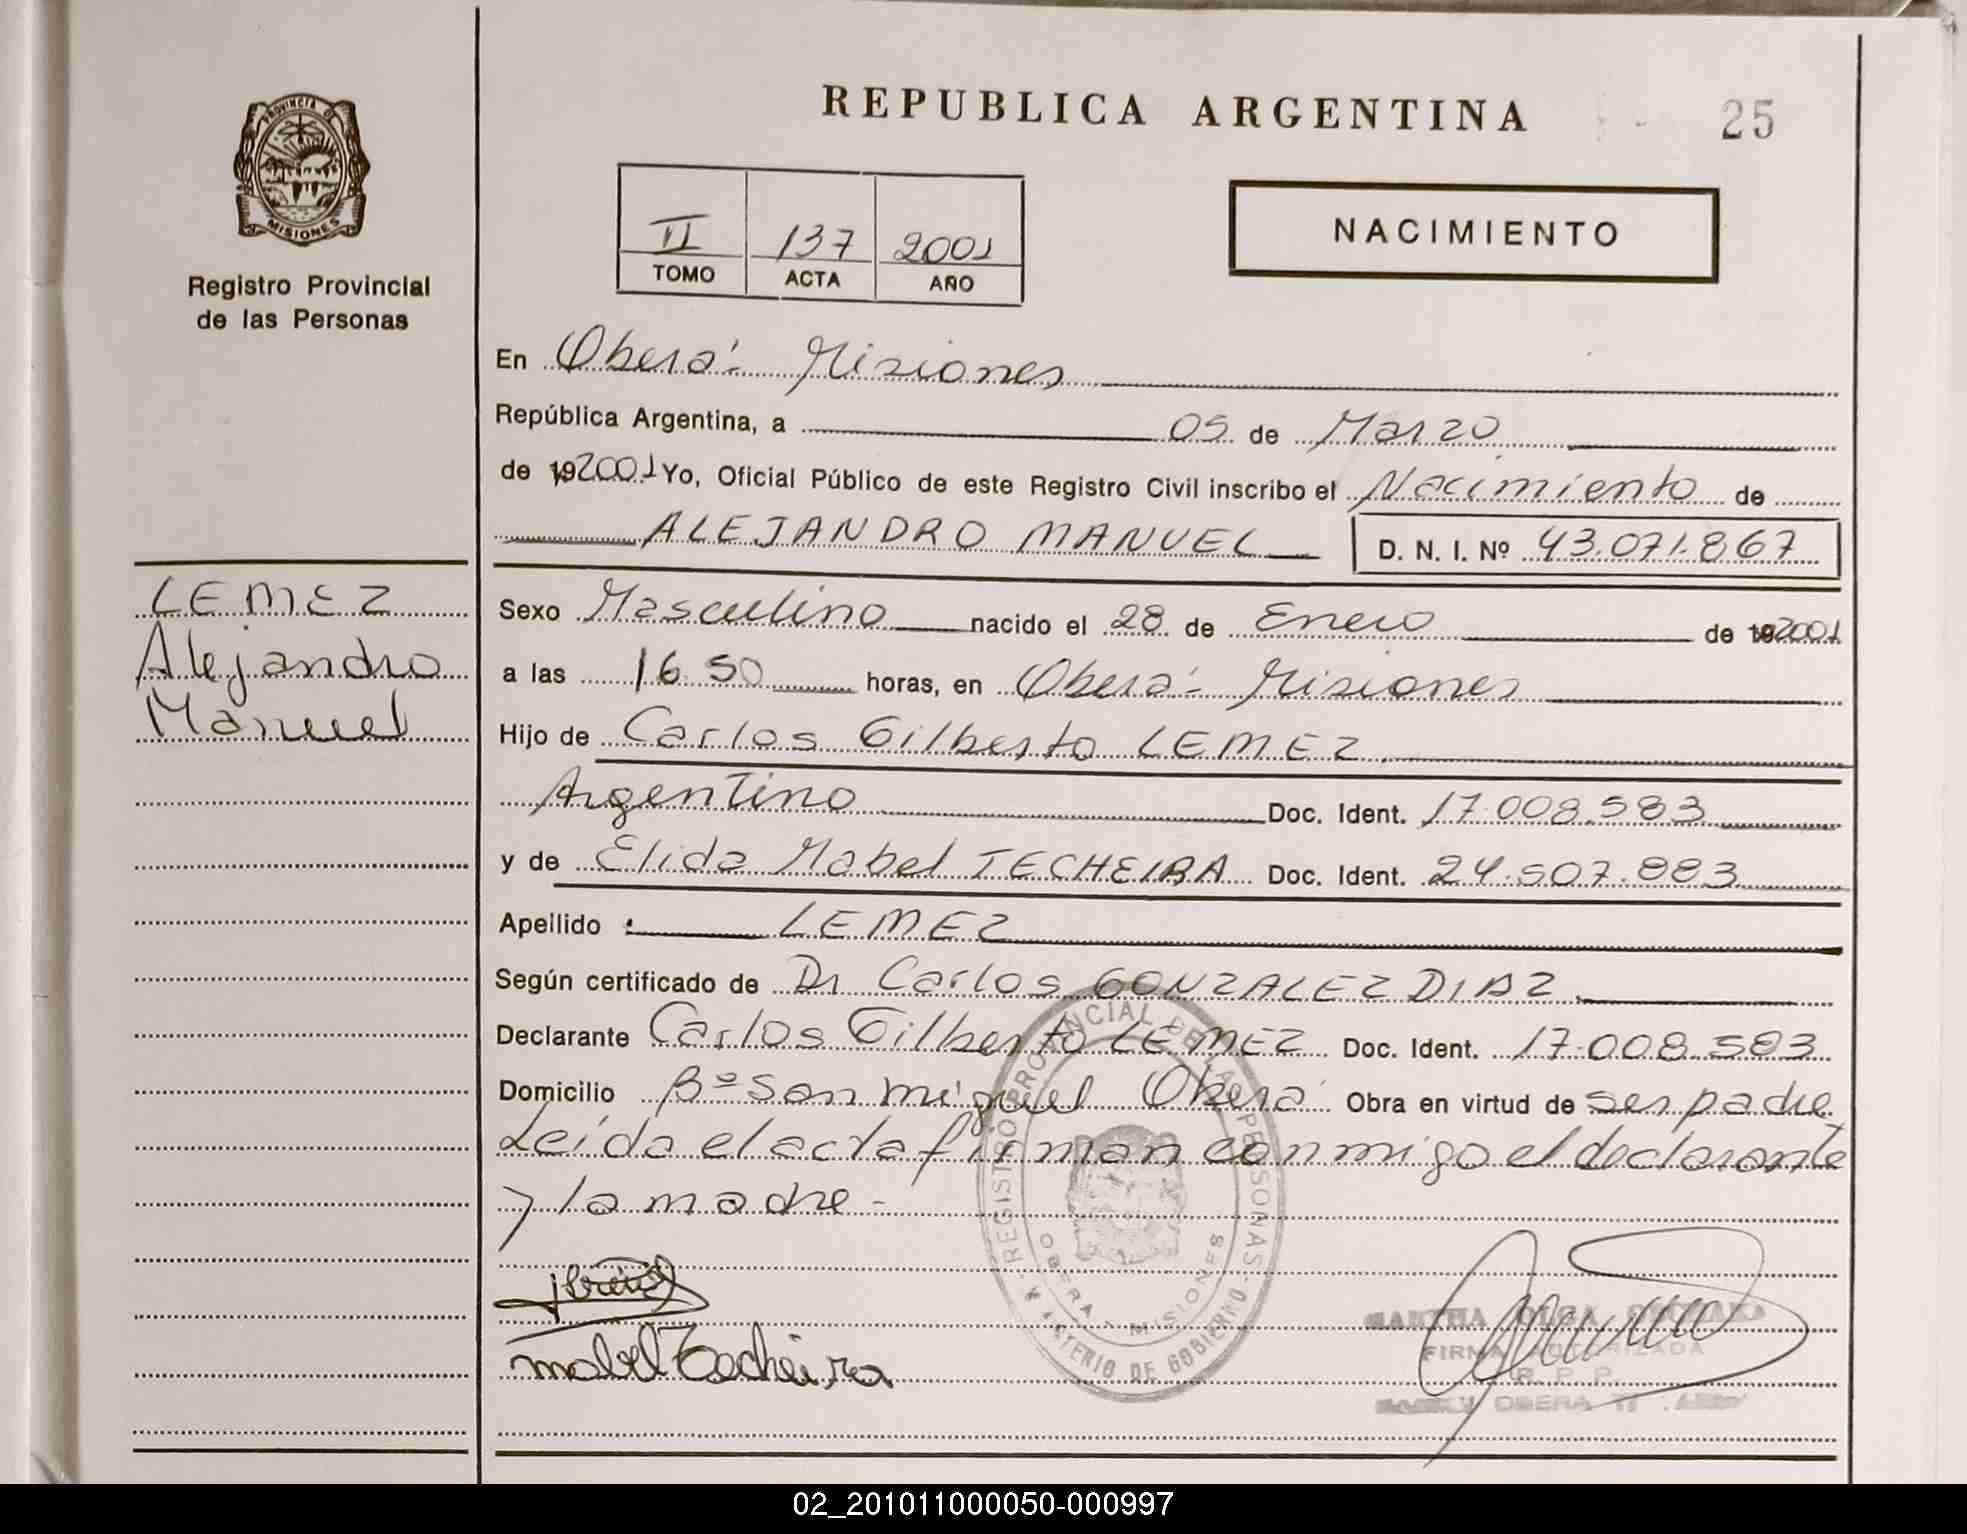 REPUBLICA ARGENTINA
25
PROVINCIA DE
MISIONES
Registro Provincial
de las Personas
II 137 2001
TOMO ACTA AÑO
NACIMIENTO
En Oberá - Misiones
República Argentina, a 05 de Marzo
de 192001 Yo, Oficial Público de este Registro Civil inscribo el Nacimiento de
ALEJANDRO MANUEL D. N. I. Nº 43.071.867
LEMEZ
Alejandro
Manuel
Sexo Masculino nacido el 28 de Enero de 192001
a las 16 50 horas, en Oberá - Misiones
Hijo de Carlos Gilberto LEMEZ
Argentino Doc. Ident. 17.008.583
y de Elida Mabel TECHEIRA Doc. Ident. 24.507.883
Apellido : LEMEZ
Según certificado de Dr Carlos GONZALEZ DIAZ
Declarante Carlos Gilberto LEMEZ Doc. Ident. 17.008.583
Domicilio Bº San Miguel Oberá Obra en virtud de ser padre
Leída el acta firman conmigo el declarante
y la madre -
REGISTRO PROVINCIAL DE LAS PERSONAS
OBERA - MISIONES
MINISTERIO DE GOBIERNO
mabel Techeira
MARTHA OLGA
FIRMA AUTORIZADA
R. P. P.
OBERA
02_201011000050-000997